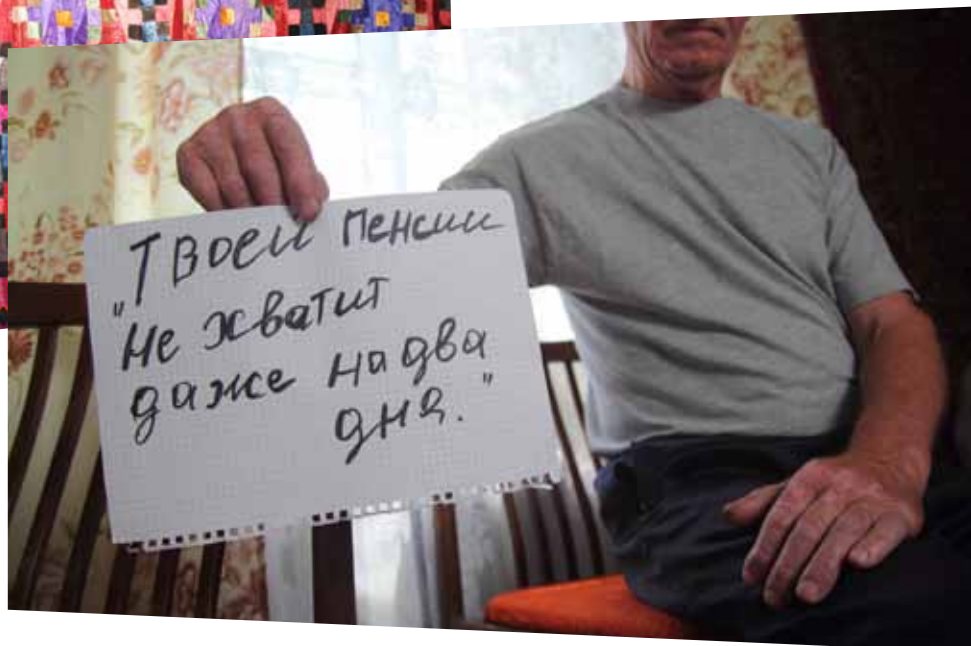 „Твоей пенсии
не хватит
даже на два
дня."